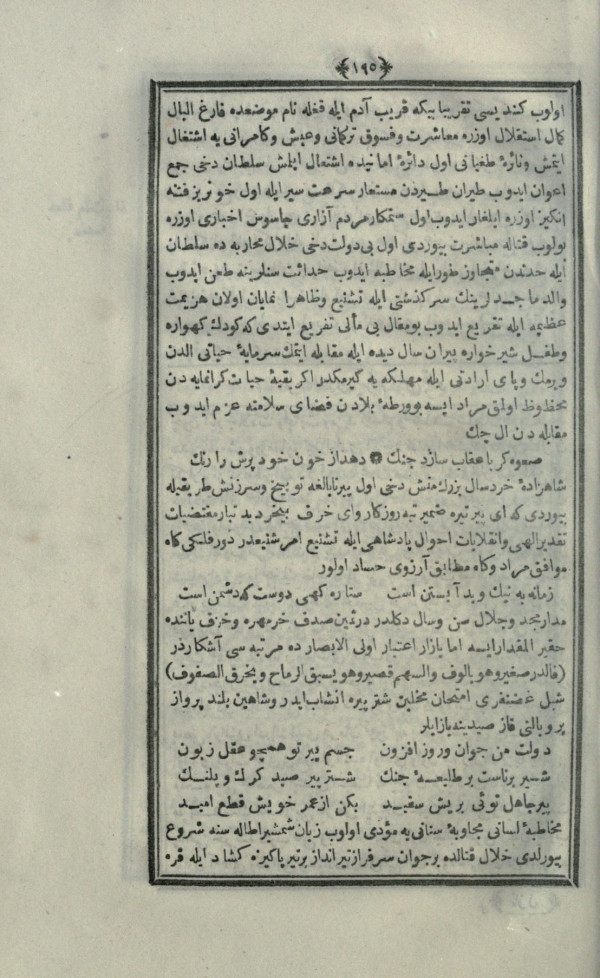 ﴿١٩٥﴾
اولوب كنديسى تقريبا بيكه قريب آدم ايله قغله نام موضعده فارغ البال
كمال استقلال اوزره معاشرت وفسوق تركمانى وعيش وكامرانى يه اشتغال
ايتمش ونائرۀ طغيانى اول دائرۀ امانيده اشتعال ايلمش سلطان دخى جمع
اعوان ايدوب طيران طيردن مستعار سرعت سير ايله اول خونريز فتنه
انكيز اوزره ايلغار ايدوب اول ستمكار مردم آزارى جاسوس اخبارى اوزره
بولوب قتاله مباشرت بيوردى اول بى دولت دخى خلال محاربه ده سلطان
ايله حددن متجاوز طور ايله مخاطبه ايدوب حداثت سنلرينه طعن ايدوب
والد ماجدلرينك سركذشتى ايله تشنيع وظاهرا نمايان اولان هزيمت
عظيمه ايله تقريع ايدوب بومقال بى مآلى تفريع ايتدى كه كودك كهواره
وطفل شيرخواره پيران سال ديده ايله مقابله ايتمك سرمايۀ حياتى الدن
ويرمك وپاى ارادتى ايله مهلكه يه كيرمكدر اكر بقيۀ حيات كرانمايه دن
محظوظ اولمق مراد ايسه بو ورطۀ بلادن فضاى سلامته عزم ايدوب
مقابله دن ال چك
صعوه كر با عقاب سازد جنك ۞ دهد از خون خود پرش را رنك
شاهزادۀ خردسال بزرك منش دخى اول پير نابالغه توبيخ وسرزنش طريقيله
بيوردى كه اى پير تيره ضمير تبه روزكار واى خرف بيخرد بد تبار مقتضيات
تقدير الهى وانقلابات احوال پادشاهى ايله تشنيع امر شنيعدر دور فلك كاه
موافق مراد وكاه مطابق آرزوى حساد اولور
زمانه به نيك وبد آبستن است ستاره كهى دوست كه دشمن است
مدار مجد وجلال سن وسال دكلدر در ثمين صدف خرمهره وخزف ياننده
حقير المقدار ايسه اما بازار اعتبار اولى الابصارده مرتبه سى آشكاردر
(فالدر صغير وهو بالوف والسهم قصير وهو يسبق الرماح ويخرق الصفوف)
شبل غضنفرى امتحان مخلبن شتر پيره انشاب ايدر وشاهين بلند پرواز
پر وبالنى قاز صيدينه يازايلر
دولت من جوان وروز افزون جسم پير تو همچو عقل زبون
شير برناست بر طليعۀ جنك شتر پير صيد كرك وپلنك
پير جاهل توئى بريش سفيد بكن از عمر خويش قطع اميد
مخاطبۀ لسانى مجاوبۀ سنانى يه مؤدى اولوب زبان شمشير اطاله سنه شروع
بيورلدى خلال قتالده بر جوان سرفراز تير انداز بر تير پاكيزه كشاد ايله قره